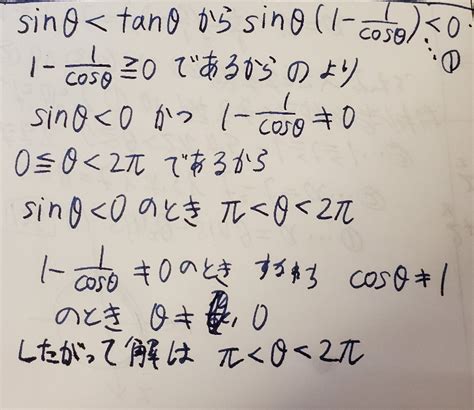 sinθ<tanθ から sinθ(1-1/cosθ)<0 …①
1-1/cosθ≧0 であるから①より
sinθ<0 かつ 1-1/cosθ≠0
0≦θ<2π であるから
sinθ<0 のとき π<θ<2π
1-1/cosθ≠0のとき すなわち cosθ≠1
のとき θ≠ 0
したがって解は π<θ<2π